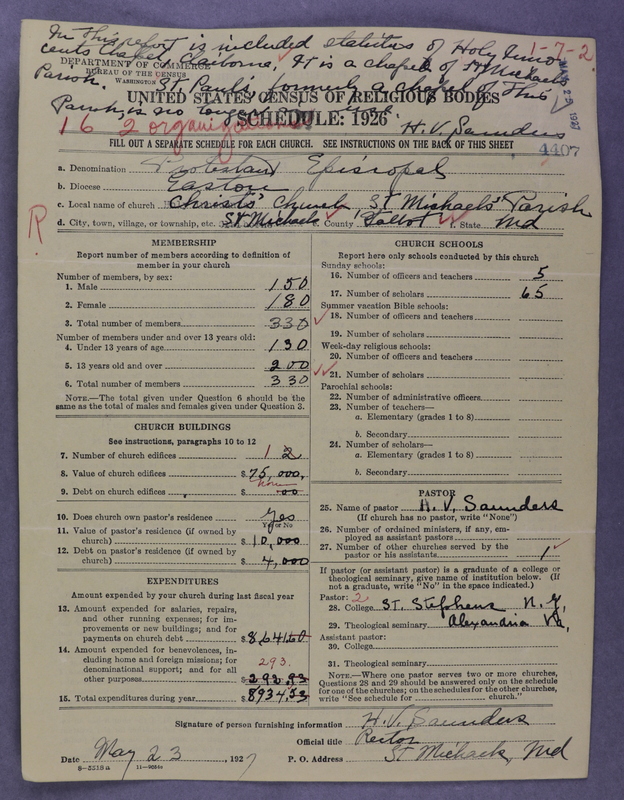 In this report is included statistics of Holy Inno- 1-7-2
cents Chapel, Claiborne, It is a chapel of St Michaels
DEPARTMENT OF COMMERCE
BUREAU OF THE CENSUS
WASHINGTON
Parish. St. Paul's, formerly a chapel of this
UNITED STATES CENSUS OF RELIGIOUS BODIES
Parish, is no longer
SCHEDULE: 1926
16 2 organizations
H. V. Saunders
FILL OUT A SEPARATE SCHEDULE FOR EACH CHURCH. SEE INSTRUCTIONS ON THE BACK OF THIS SHEET
4407
a. Denomination Protestant Episcopal
b. Diocese Easton
c. Local name of church Christs' Church St Michaels' Parish
d. City, town, village, or township, etc. St Michaels e. County Talbot f. State Md
R
MEMBERSHIP
Report number of members according to definition of
member in your church
Number of members, by sex:
1. Male 150
2. Female 180
3. Total number of members 330
Number of members under and over 13 years old:
4. Under 13 years of age 130
5. 13 years old and over 200
6. Total number of members 330
NOTE.—The total given under Question 6 should be the
same as the total of males and females given under Question 3.
CHURCH BUILDINGS
See instructions, paragraphs 10 to 12
7. Number of church edifices 1 2
8. Value of church edifices $75,000,
none
9. Debt on church edifices $ 00
10. Does church own pastor's residence Yes
Yes or No
11. Value of pastor's residence (if owned by
church) $10,000
12. Debt on pastor's residence (if owned by
church) $4,000
EXPENDITURES
Amount expended by your church during last fiscal year
13. Amount expended for salaries, repairs,
and other running expenses; for im-
provements or new buildings; and for
payments on church debt $8641.60
14. Amount expended for benevolences, in-
cluding home and foreign missions; for
denominational support; and for all 293.
other purposes $292.93
15. Total expenditures during year $8934.53
CHURCH SCHOOLS
Report here only schools conducted by this church
Sunday schools:
16. Number of officers and teachers 5
17. Number of scholars 65
Summer vacation Bible schools:
18. Number of officers and teachers
19. Number of scholars
Week-day religious schools:
20. Number of officers and teachers
21. Number of scholars
Parochial schools:
22. Number of administrative officers
23. Number of teachers—
a. Elementary (grades 1 to 8)
b. Secondary
24. Number of scholars—
a. Elementary (grades 1 to 8)
b. Secondary
PASTOR
25. Name of pastor H. V. Saunders
(If church has no pastor, write "None")
26. Number of ordained ministers, if any, em-
ployed as assistant pastors
27. Number of other churches served by the
pastor or his assistants 1
If pastor (or assistant pastor) is a graduate of a college or
theological seminary, give name of institution below. (If
not a graduate, write "No" in the space indicated.)
Pastor: 2
28. College St. Stephens N. Y,
29. Theological seminary Alexandria Va,
Assistant pastor:
30. College
31. Theological seminary
NOTE.—Where one pastor serves two or more churches,
Questions 28 and 29 should be answered only on the schedule
for one of the churches; on the schedules for the other churches,
write "See schedule for church."
Signature of person furnishing information H. V. Saunders
Official title Rector
Date May 23, 1927 P. O. Address St Michaels, Md
8—5518a 11—9064a